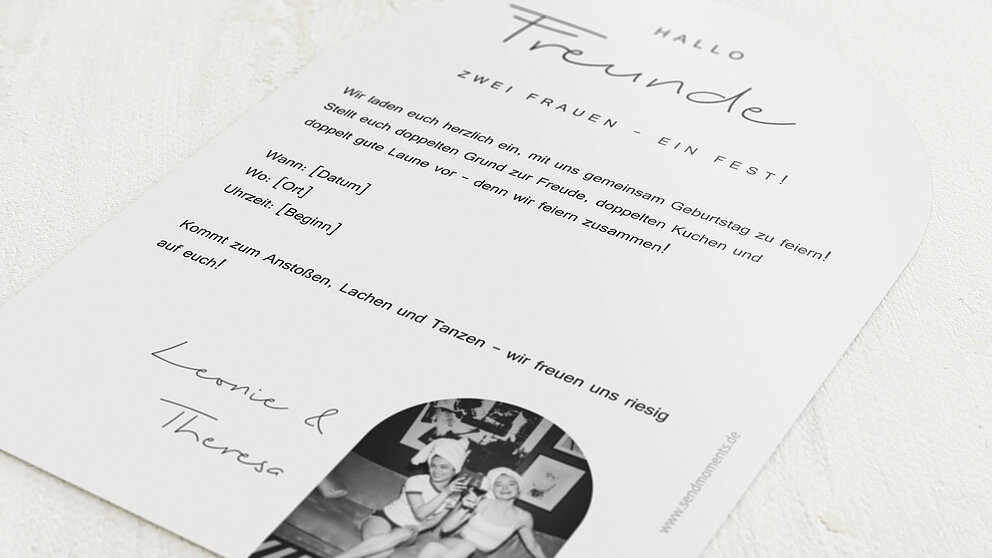 HALLO
Freunde
ZWEI FRAUEN – EIN FEST!
Wir laden euch herzlich ein, mit uns gemeinsam Geburtstag zu feiern!
Stellt euch doppelten Grund zur Freude, doppelten Kuchen und
doppelt gute Laune vor – denn wir feiern zusammen!
Wann: [Datum]
Wo: [Ort]
Uhrzeit: [Beginn]
Kommt zum Anstoßen, Lachen und Tanzen – wir freuen uns riesig
auf euch!
Leonie &
Theresa
www.sendmoments.de